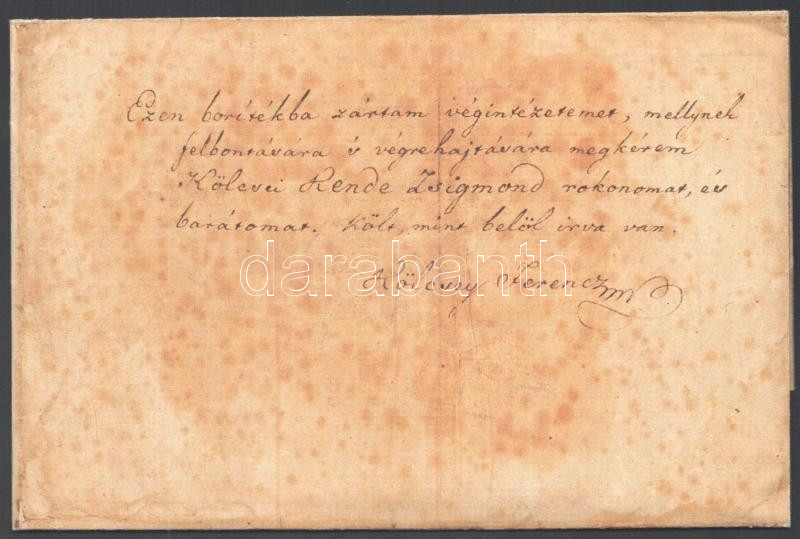 Ezen borítékba zártam végintézetemet, mellynek
felbontására és végrehajtására megkérem
Kölcsei Kende Zsigmond rokonomat, és
barátomat. Költ, mint belöl irva van.
darabanth
Kölcsey Ferencz